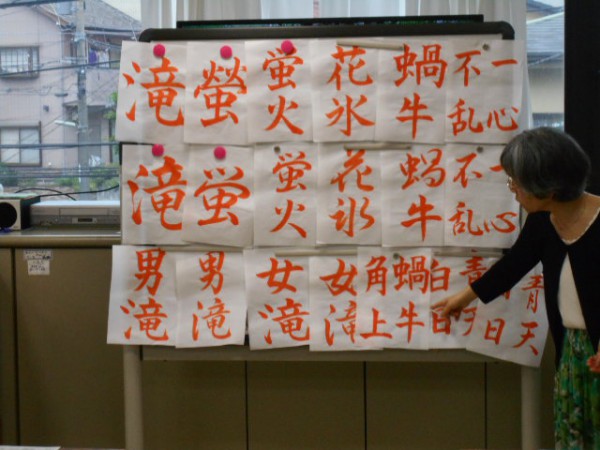 一心
不乱
蝸牛
花氷
蛍火
螢
滝
一心
不乱
蝸牛
花氷
蛍火
蛍
滝
青天
日
青天
白日
蝸牛
角上
女滝
女滝
男滝
男滝